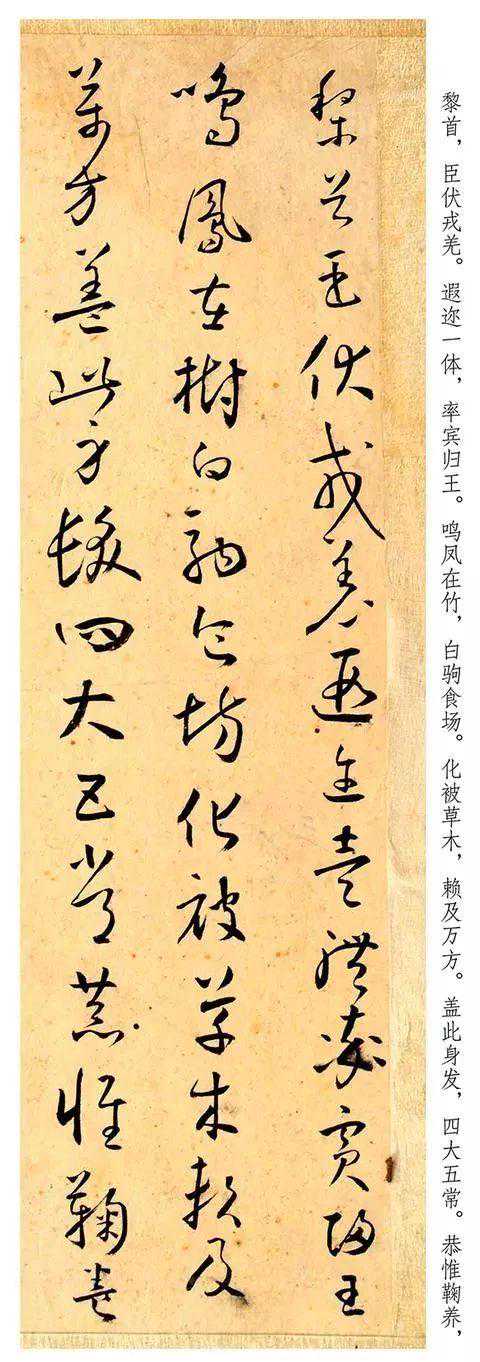 黎首，臣伏戎羌。遐迩一体，率宾归王。鸣凤在竹，白驹食场。化被草木，赖及万方。盖此身发，四大五常。恭惟鞠养，
黎首臣伏戎羌遐邇壹體率賓歸王
鳴鳳在樹白駒食場化被草木賴及
萬方蓋此身髮四大五常恭惟鞠養